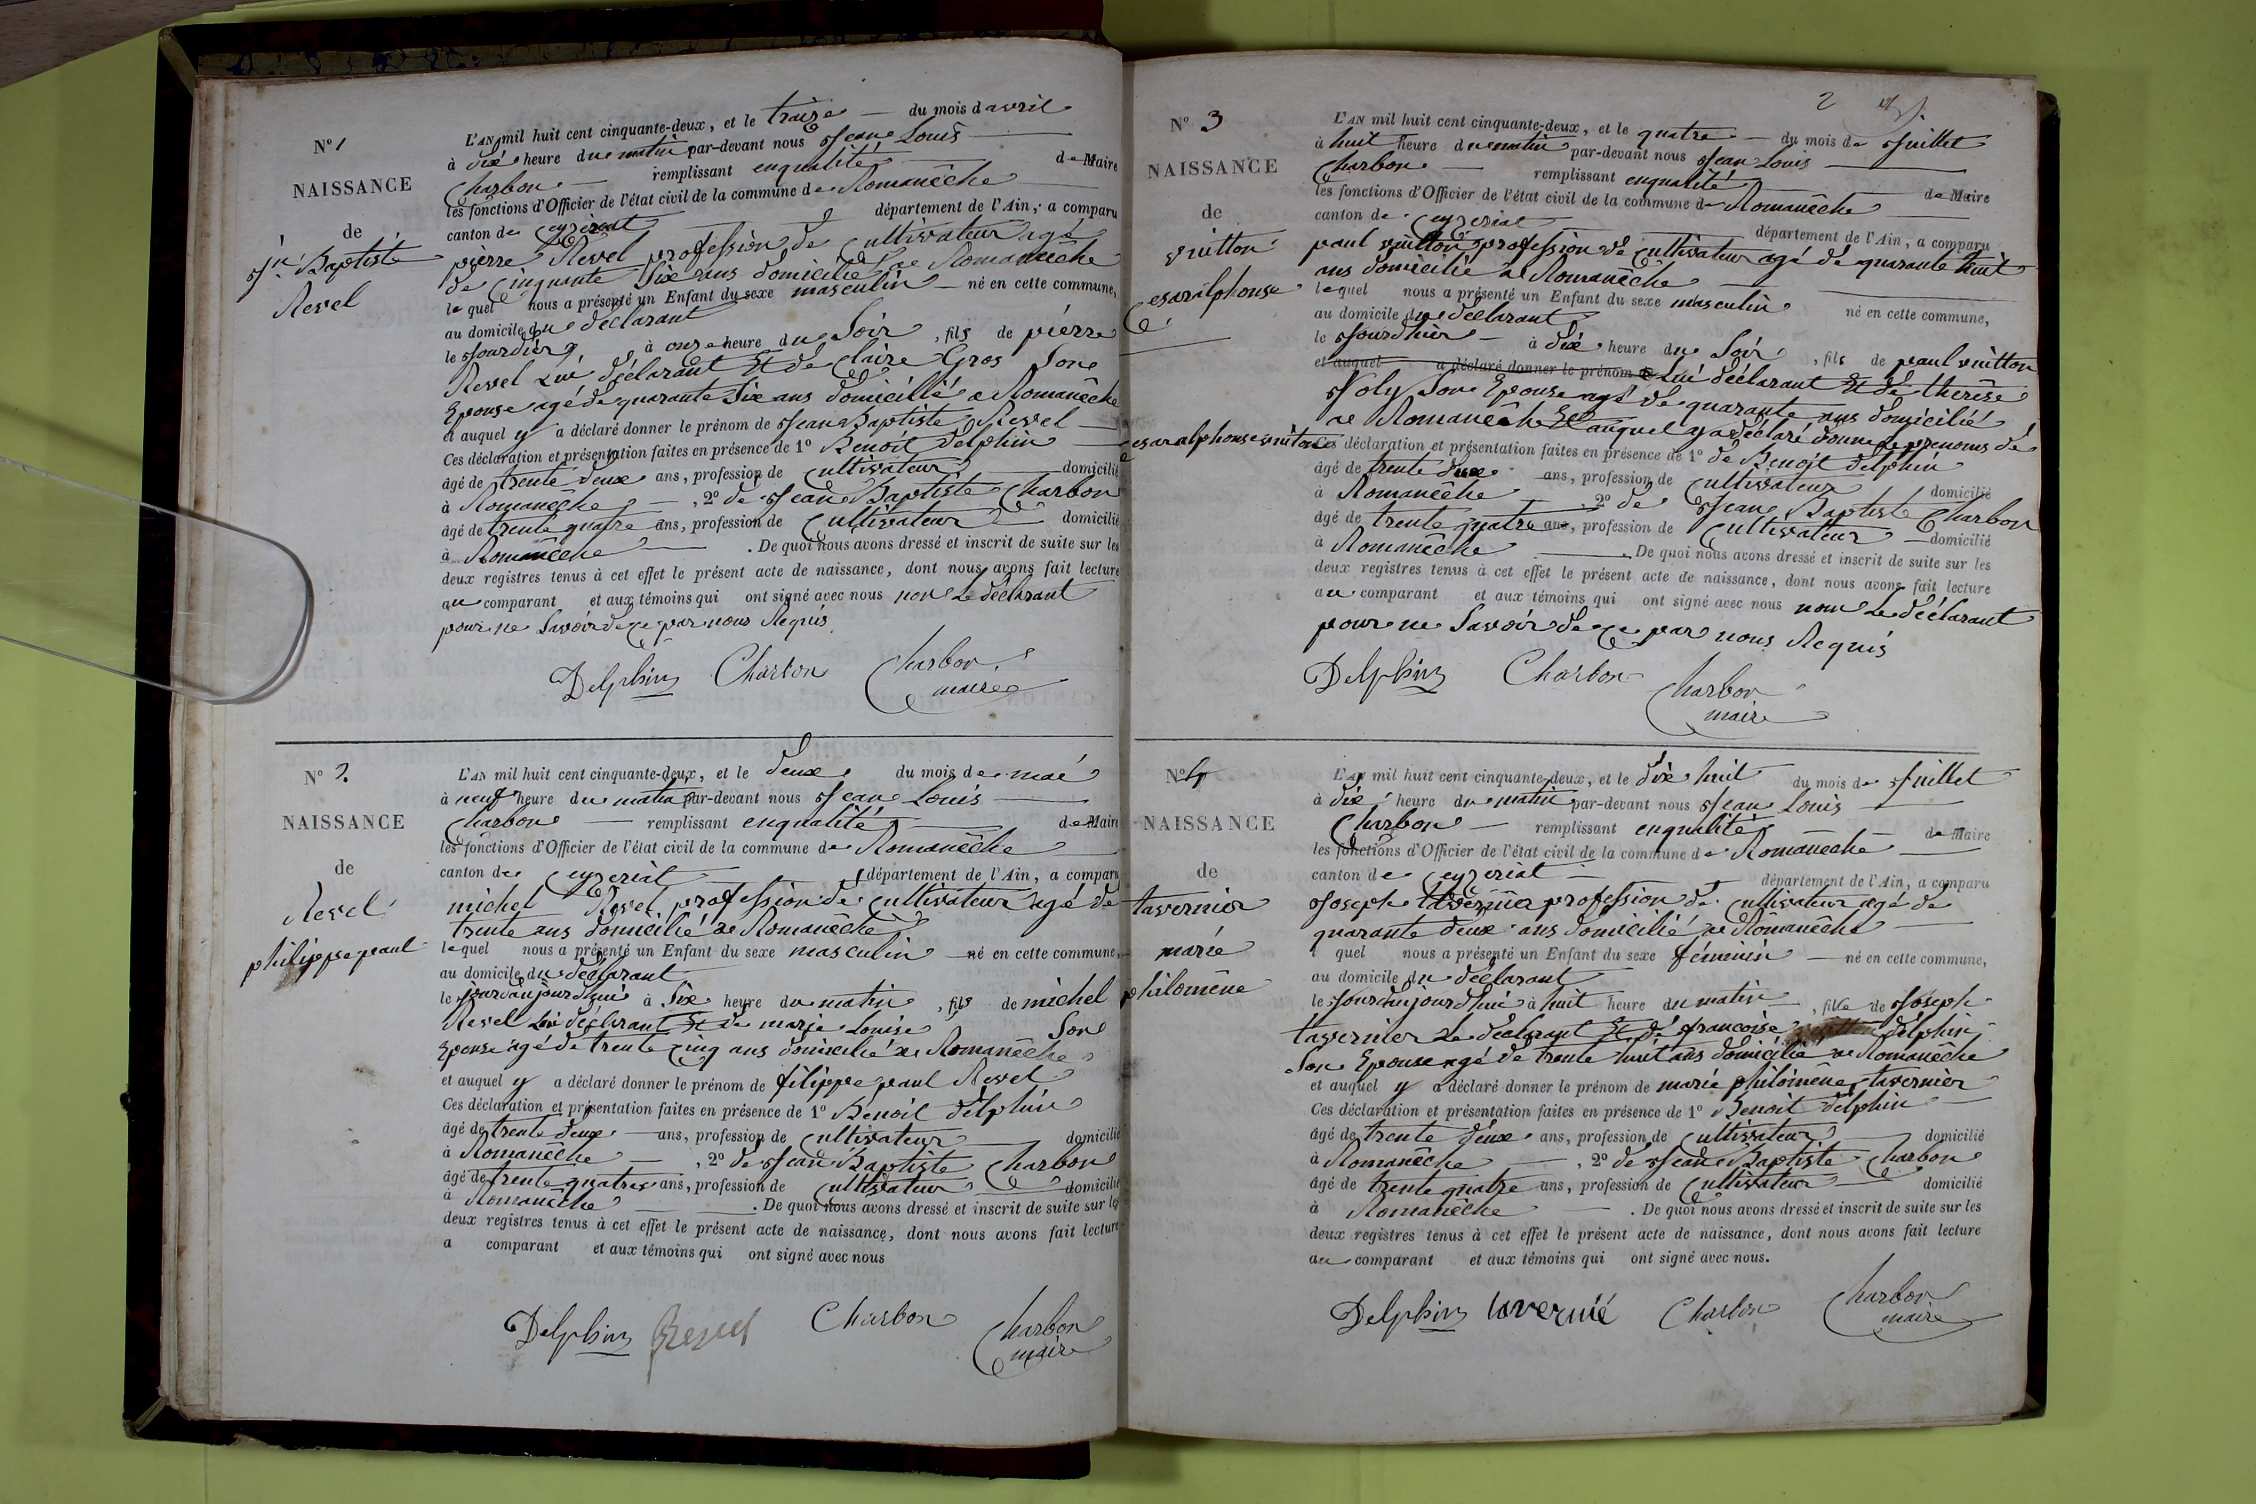 N° 1
NAISSANCE
de
Jn Baptiste
Revel
L'AN mil huit cent cinquante-deux, et le traize du mois d avril
à dix heure du matin par-devant nous Jean Louis
Charbon remplissant enqualité de Maire
les fonctions d'Officier de l'état civil de la commune de Romanêche
canton de Ceyzeriat département de l'Ain, a comparu
pierre Revel profession de Cultivateur agé
de Cinquante Six ans domicilié a Romanêche
le quel nous a présenté un Enfant du sexe masculin né en cette commune,
au domicile du déclarant
le Jourdiérq à onze heure du Soir, fils de piérre
Revel Lui déclarant Et de Claire Gros Son
Epouse agé de quarante Six ans domicillié a Romanêche
et auquel y a déclaré donner le prénom de Jean Baptiste Revel
Ces déclaration et présentation faites en présence de 1° Benoit delphin
âgé de trente deux ans, profession de Cultivateur domicilié
à Romanêche, 2° de Jean Baptiste Charbon
âgé de trente quatre ans, profession de Cultivateur domicilié
à Romanêche. De quoi nous avons dressé et inscrit de suite sur les
deux registres tenus à cet effet le présent acte de naissance, dont nous avons fait lecture
au comparant et aux témoins qui ont signé avec nous non Le déclarant
pour ne Savoir de Ce par nous Requis
Delphin Charbon Charbon
maire
N° 2.
NAISSANCE
de
Revel
philippe paul
L'AN mil huit cent cinquante-deux, et le deux du mois de maé
à neuf heure du matin par-devant nous Jean Louis
Charbon remplissant enqualité de Maire
les fonctions d'Officier de l'état civil de la commune de Romanêche
canton de Ceyzeriat département de l'Ain, a comparu
michel Revel profession de Cultivateur agé de
trente ans domicilié a Romanêche
lequel nous a présenté un Enfant du sexe masculin né en cette commune,
au domicile du déclarant
le jourdaujourdhui à Six heure du matin, fils de michel
Revel Lui déclarant Et de marie Louise Son
Epouse agé de trente Cinq ans domicilié a Romanêche
et auquel y a déclaré donner le prénom de filippe paul Revel
Ces déclaration et présentation faites en présence de 1° Benoit delphin
âgé de trente deux ans, profession de Cultivateur domicilié
à Romanêche, 2° de Jean Baptiste Charbon
âgé de trente quatre ans, profession de Cultivateur domicilié
à Romanêche. De quoi nous avons dressé et inscrit de suite sur les
deux registres tenus à cet effet le présent acte de naissance, dont nous avons fait lecture
a comparant et aux témoins qui ont signé avec nous
Delphin Revel Charbon Charbon
maire
2
N° 3
NAISSANCE
de
vuitton
Cesaralphonse
Cesaralphonse vuitton
L'AN mil huit cent cinquante-deux, et le quatre du mois de Juillet
à huit heure du matin par-devant nous Jean Louis
Charbon remplissant enqualité de Maire
les fonctions d'Officier de l'état civil de la commune de Romanêche
canton de Ceyzeriat département de l'Ain, a comparu
paul vuitton profession de Cultivateur agé de quarante huit
ans domicilié a Romanêche
lequel nous a présenté un Enfant du sexe masculin né en cette commune,
au domicile du déclarant
le Jourdhier à dix heure du Soir, fils de paul vuitton
et auquel a déclaré donner le prénom de Lui déclarant Et de therêse
Joly Son Epouse agé de quarante ans domicilié
a Romanêche Et auquel y a déclaré donner le prenoms de
Ces déclaration et présentation faites en présence de 1° de Benoit delphin
âgé de trente deux ans, profession de Cultivateur domicilié
à Romanêche, 2° de Jean Baptiste Charbon
âgé de trente quatre ans, profession de Cultivateur domicilié
à Romanêche. De quoi nous avons dressé et inscrit de suite sur les
deux registres tenus à cet effet le présent acte de naissance, dont nous avons fait lecture
au comparant et aux témoins qui ont signé avec nous non Le déclarant
pour ne Savoir de Ce par nous Requis
Delphin Charbon Charbon
maire
N° 4
NAISSANCE
de
tavernier
marie
philomêne
L'AN mil huit cent cinquante-deux, et le dix huit du mois de Juillet
à dix heure du matin par-devant nous Jean Louis
Charbon remplissant enqualité de Maire
les fonctions d'Officier de l'état civil de la commune de Romanêche
canton de Ceyzeriat département de l'Ain, a comparu
Joseph tavernier profession de Cultivateur agé de
quarante deux ans domicilié a Romanêche
l quel nous a présenté un Enfant du sexe féminin né en cette commune,
au domicile du déclarant
le Jourdaujourdhui à huit heure du matin, fille de Joseph
tavernier Le déclarant Et de francoise delphin
Son Epouse agé de trente huit ans domicilié a Romanêche
et auquel y a déclaré donner le prénom de marie philomêne tavernier
Ces déclaration et présentation faites en présence de 1° Benoit delphin
âgé de trente deux ans, profession de Cultivateur domicilié
à Romanêche, 2° de Jean Baptiste Charbon
âgé de trente quatre ans, profession de Cultivateur domicilié
à Romanêche. De quoi nous avons dressé et inscrit de suite sur les
deux registres tenus à cet effet le présent acte de naissance, dont nous avons fait lecture
au comparant et aux témoins qui ont signé avec nous.
Delphin taverníé Charbon Charbon
maire